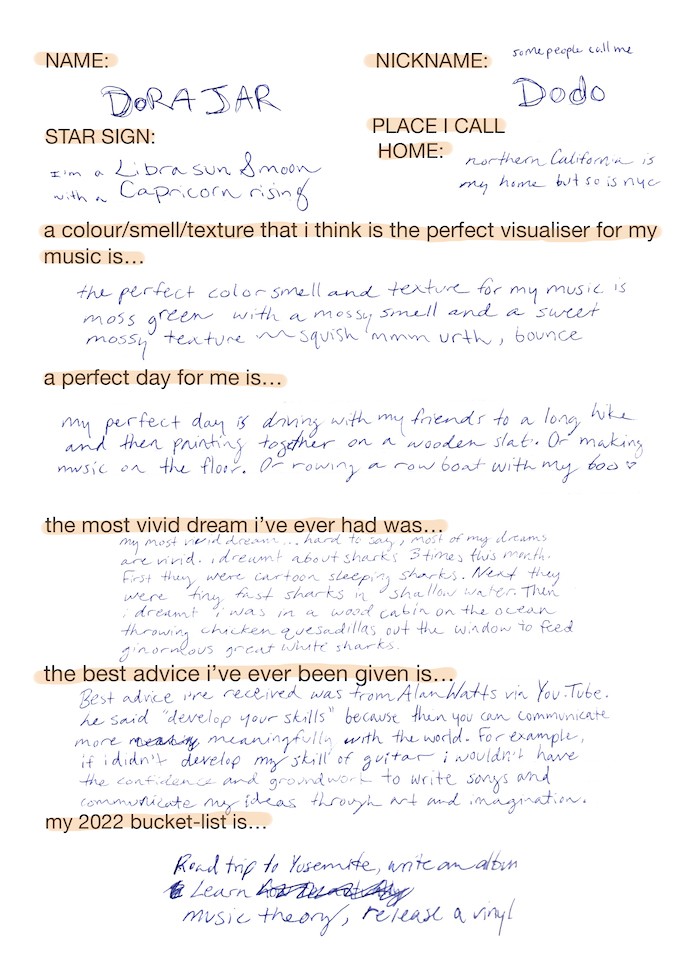 NAME:
DORA JAR
NICKNAME:
some people call me
Dodo
STAR SIGN:
I'm a Libra sun & moon
with a Capricorn rising
PLACE I CALL
HOME:
northern California is
my home but so is nyc
a colour/smell/texture that i think is the perfect visualiser for my
music is…
the perfect color smell and texture for my music is
moss green with a mossy smell and a sweet
mossy texture ~~ squish mmm urth, bounce
a perfect day for me is…
my perfect day is driving with my friends to a long hike
and then painting together on a wooden slat. Or making
music on the floor. Or rowing a row boat with my boo ♡
the most vivid dream i've ever had was…
my most vivid dream... hard to say, most of my dreams
are vivid. i dreamt about sharks 3 times this month.
First they were cartoon sleeping sharks. Next they
were tiny fast sharks in shallow water. Then
i dreamt i was in a wood cabin on the ocean
throwing chicken quesadillas out the window to feed
ginormous great white sharks.
the best advice i've ever been given is…
Best advice i've received was from Alan Watts via YouTube.
he said "develop your skills" because then you can communicate
more meaningfully with the world. For example,
if i didn't develop my skill of guitar i wouldn't have
the confidence and groundwork to write songs and
communicate my ideas through art and imagination.
my 2022 bucket-list is…
Road trip to Yosemite, write an album
Learn
music theory, release a vinyl